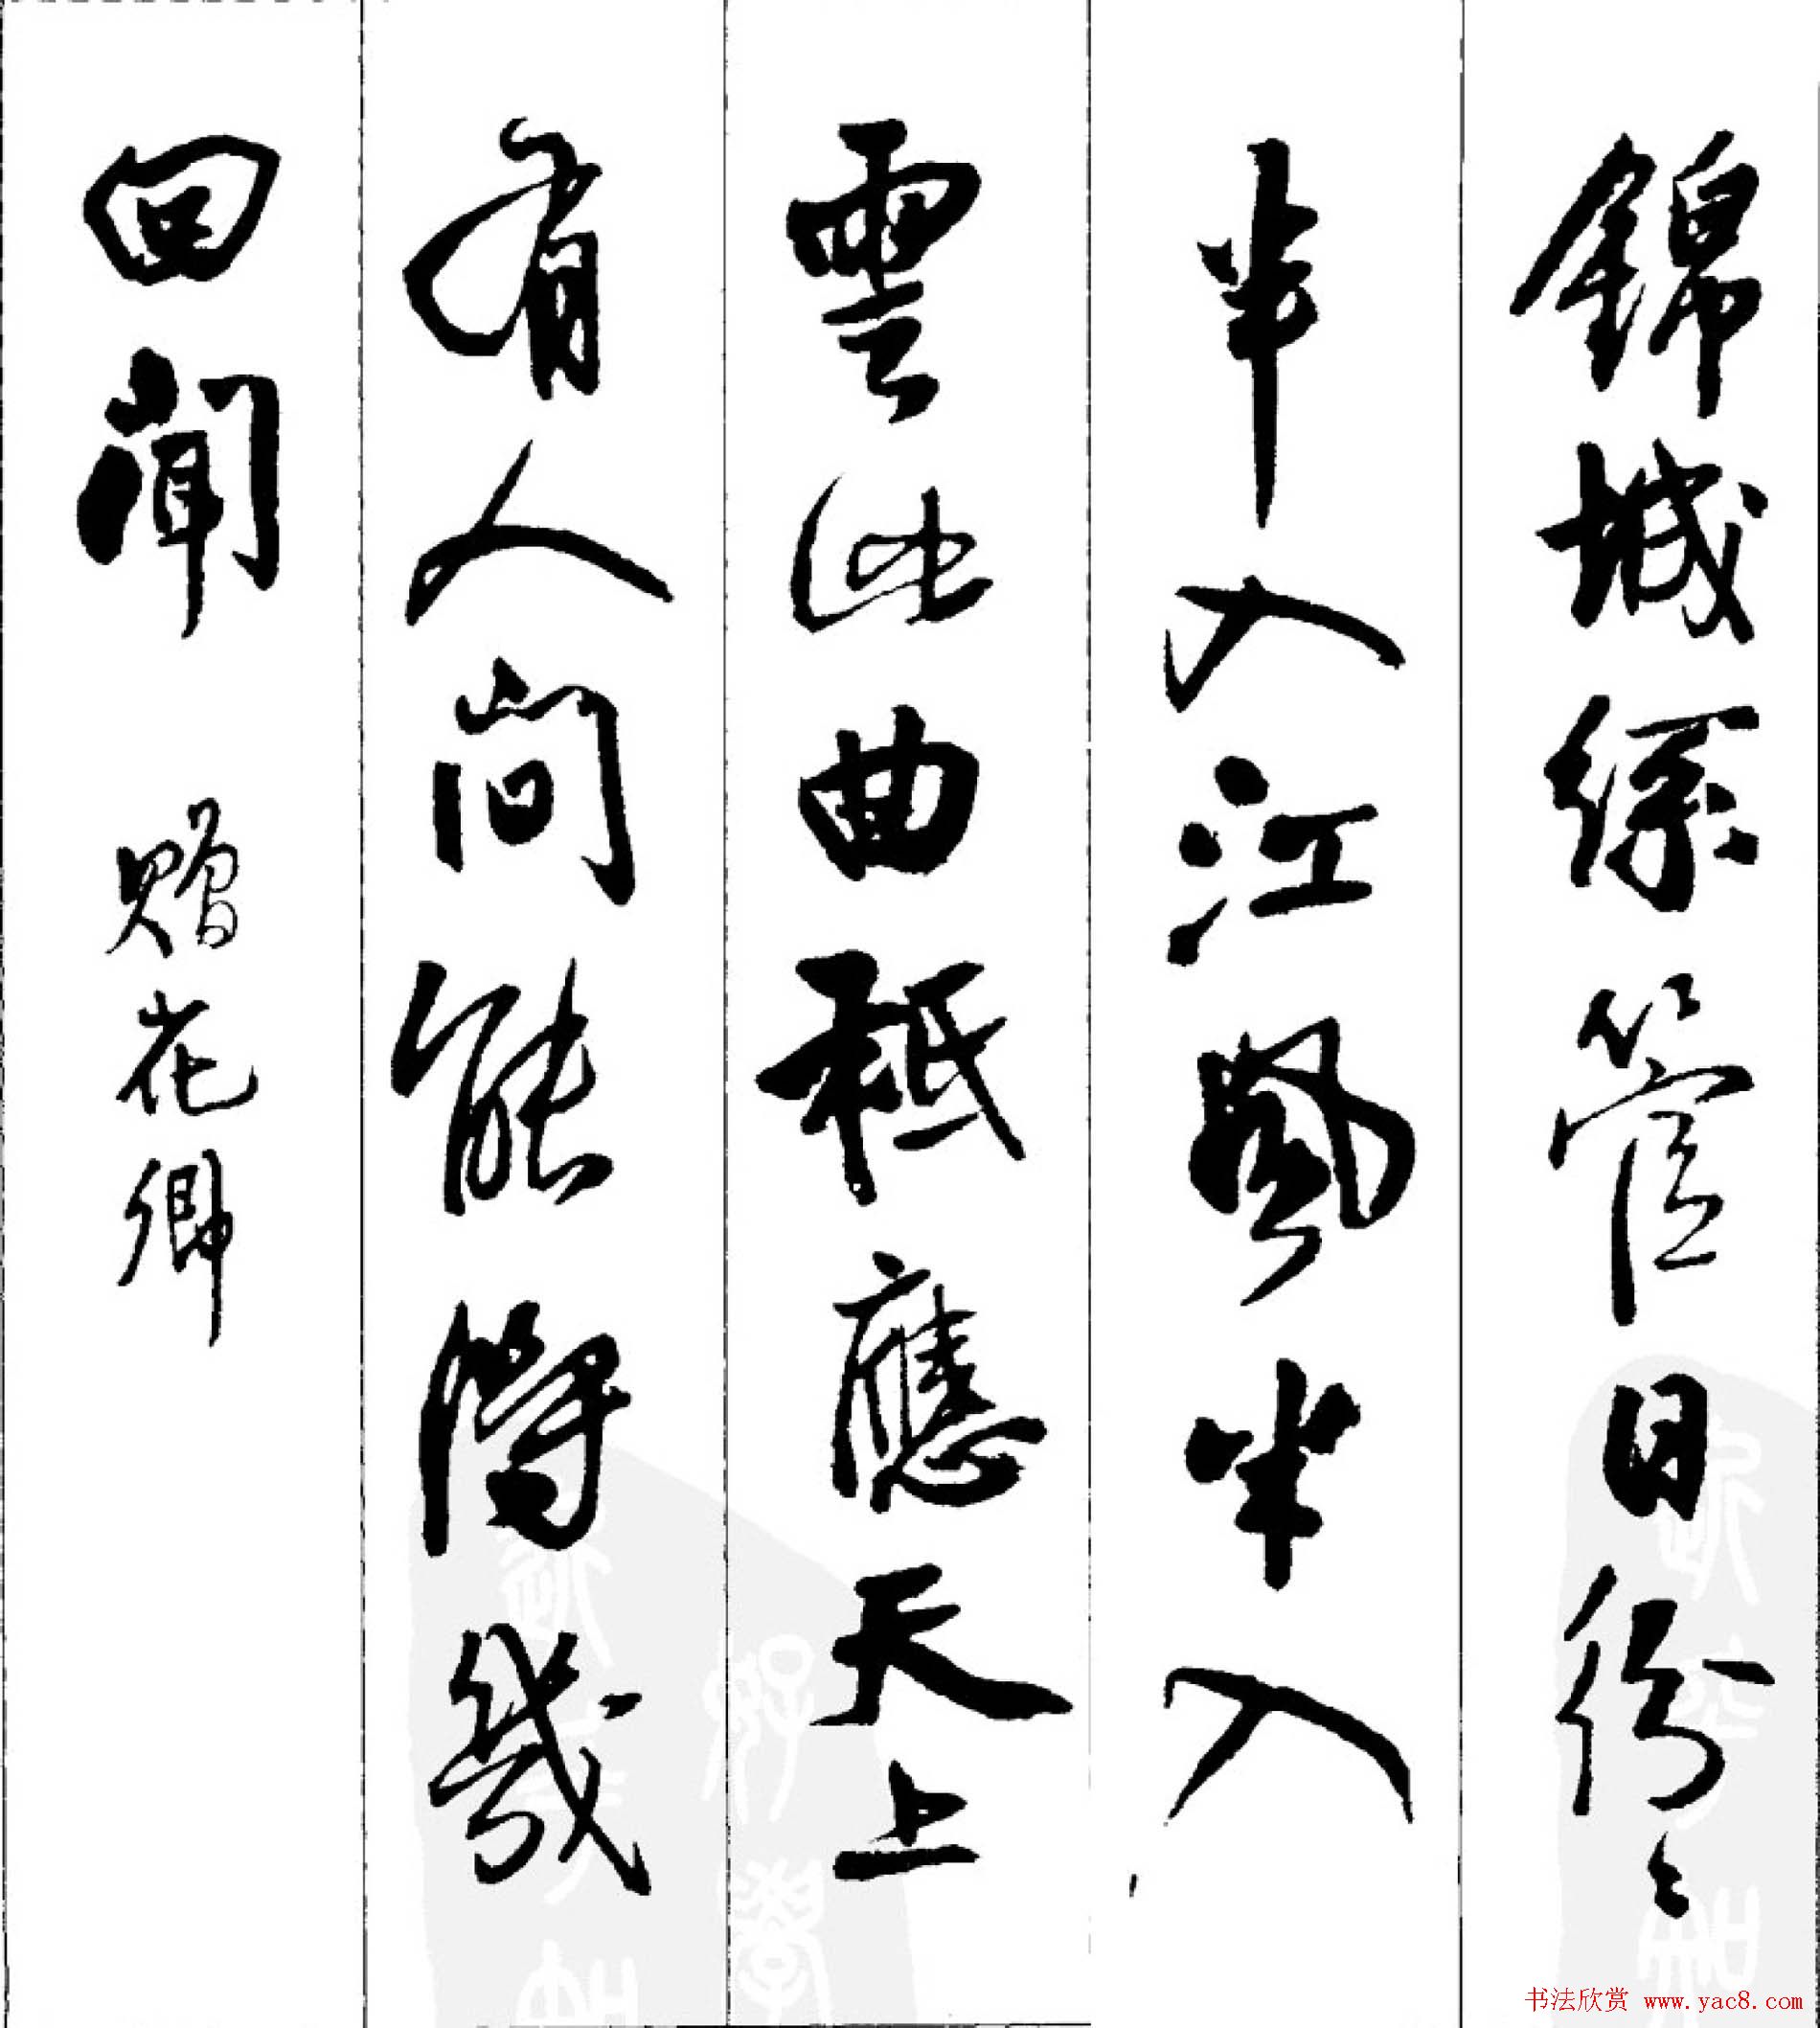 錦城絲管日紛〻
半入江風半入
雲此曲秪應天上
有人間能得幾
回聞 贈花卿
书法欣赏 www.yac8.com